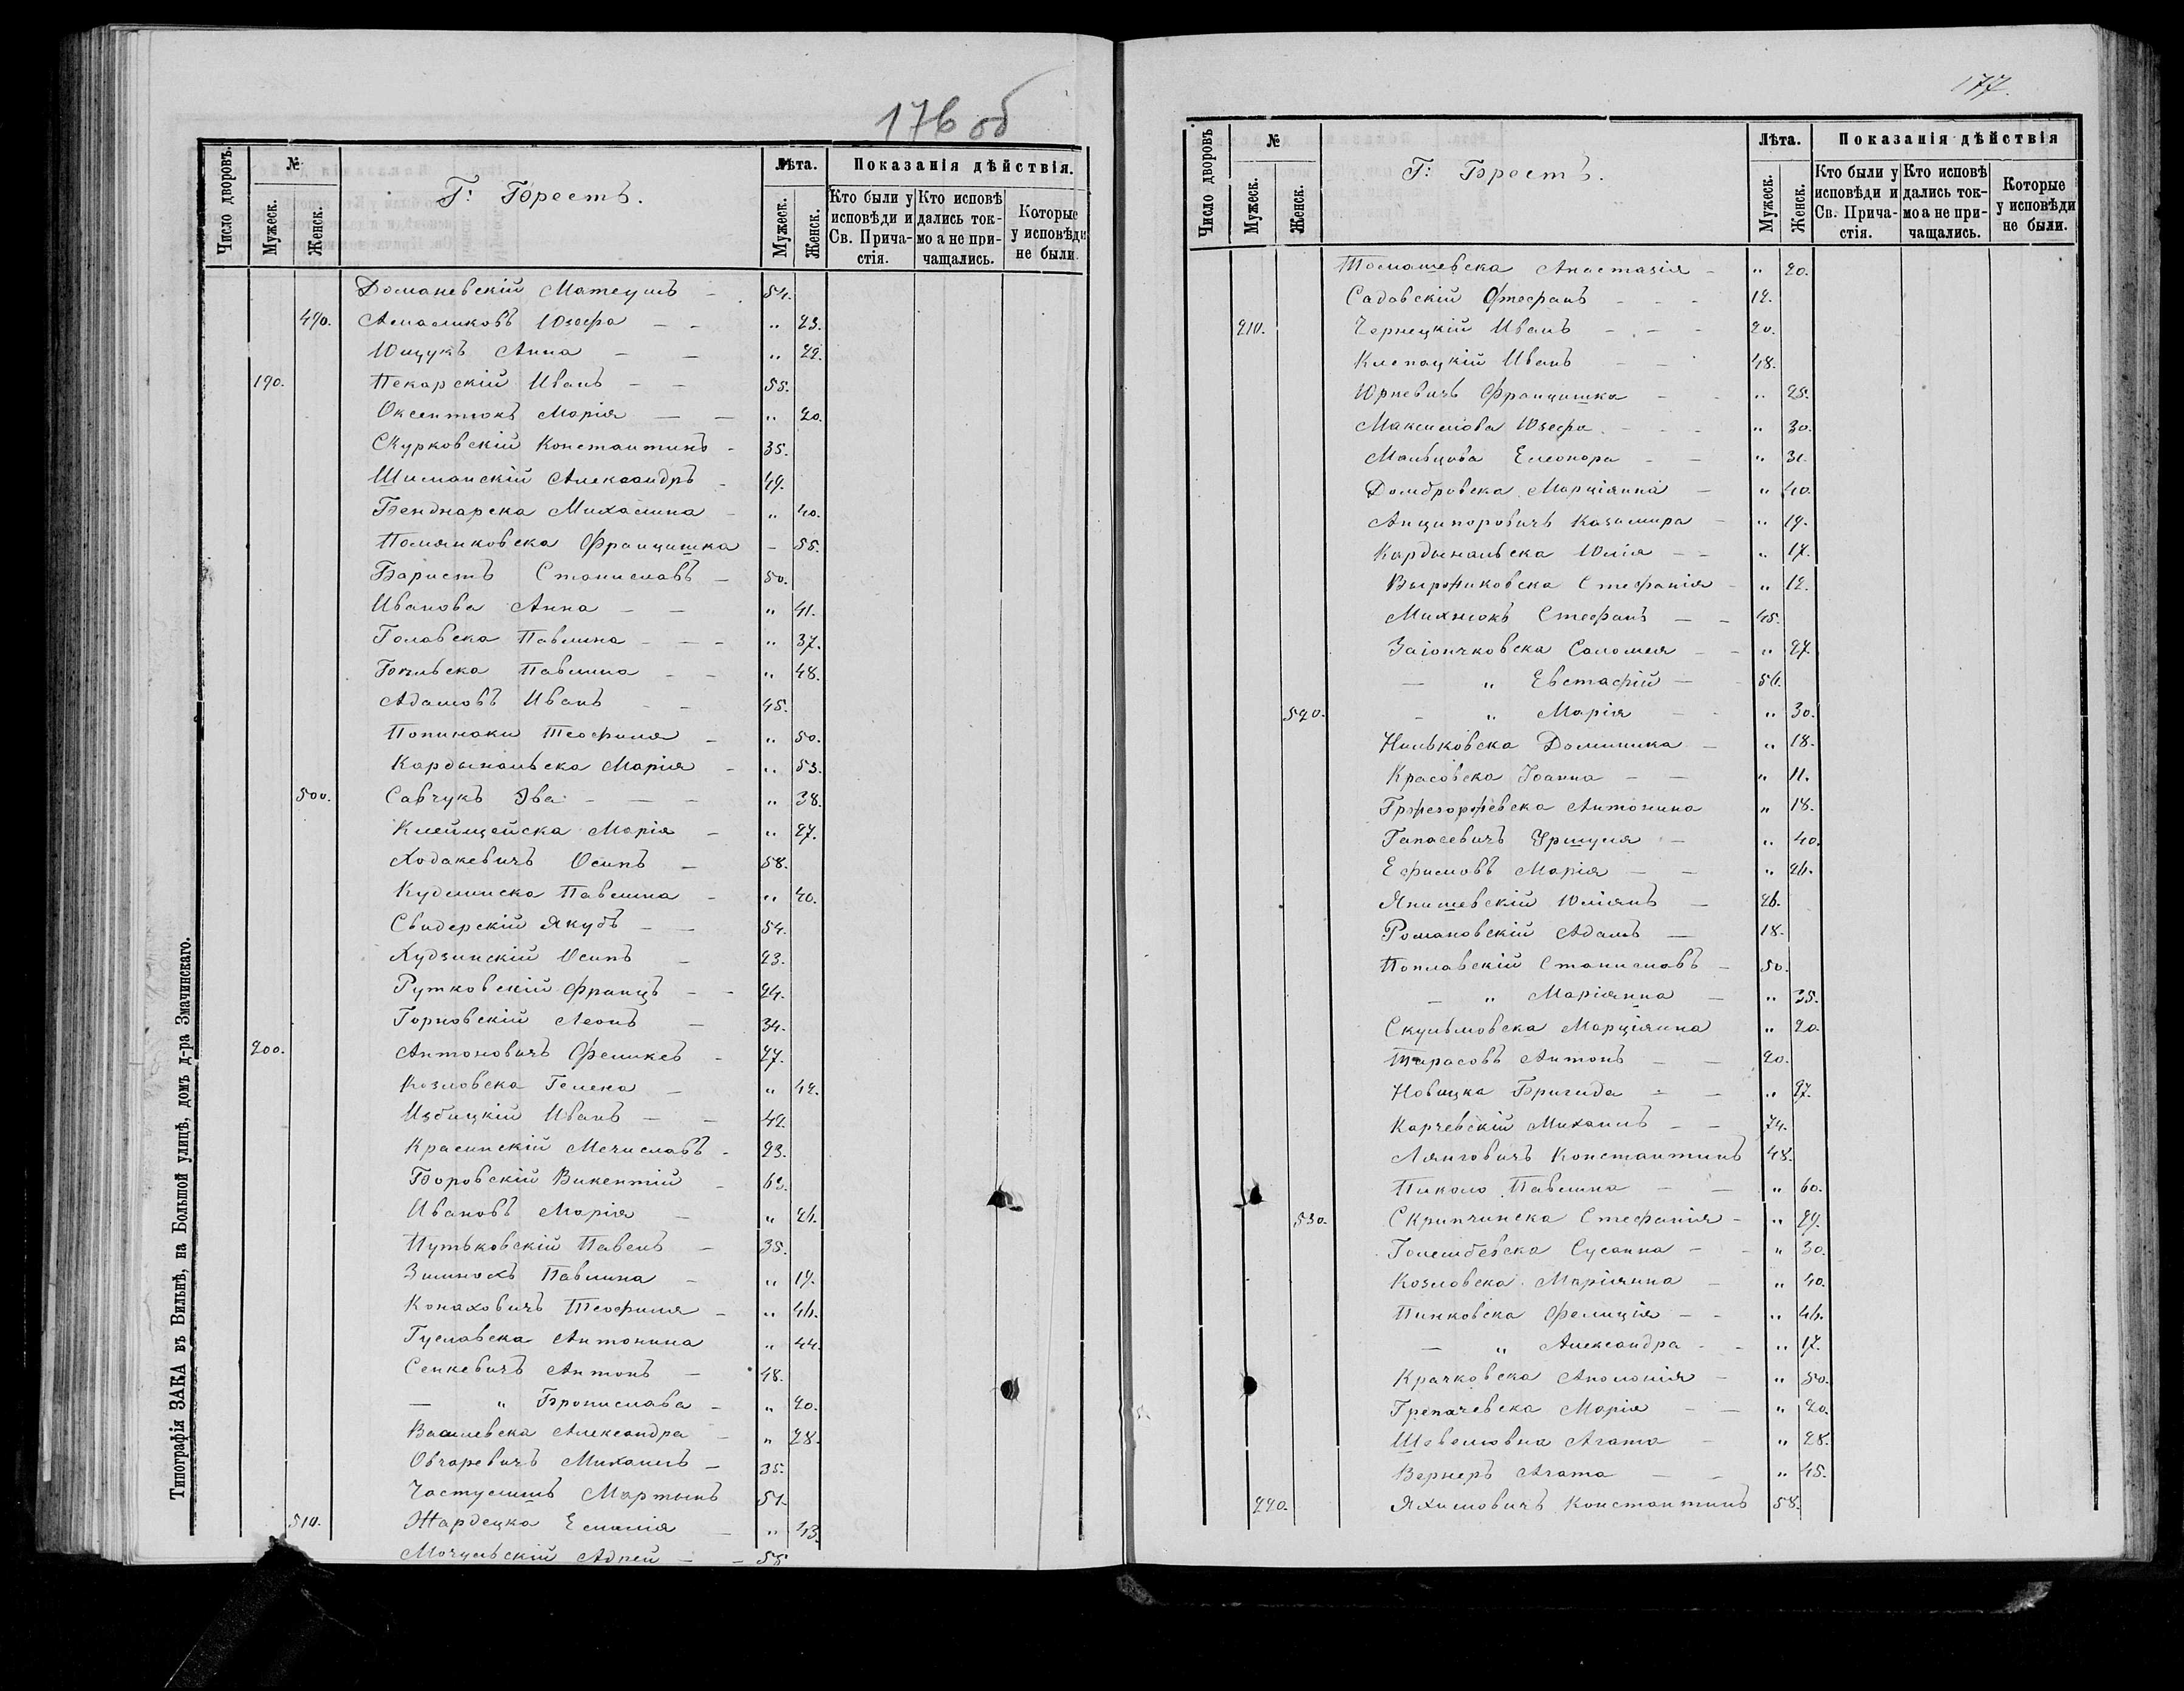 176 об
Типографія ЗАКА въ Вильнѣ, на Большой улицѣ, домъ д-ра Змачинскаго.
Число дворовъ. № Мужеск. Женск.
Г: Брестъ.
Лѣта. Мужеск. Женск.
Показанія дѣйствія.
Кто были у исповѣди и Св. Прича-стія. Кто исповѣ дались ток-мо а не при-чащались. Которые у исповѣди не были.
Доманевскій Матеушъ - 54.
490. Юзефа - - " 23.
Ющукъ Анна - - " 22.
190. Пекарскій Иванъ - - 55.
Оксентюкъ Марія - - " 20.
Скурковскій Константинъ - 35.
Шиманскій Александръ - 49.
Бенднарска Михалина - " 40.
Помянковска Францишка - 55.
Баристъ Станиславъ - 50.
Иванова Анна - - " 41.
Голавска Павлина - - - " 37.
Павлина - - " 48.
Адамовъ Иванъ - - 45.
Попинаки Теофиля - " 50.
Кардынальска Марія - " 53.
500. Савчукъ Эва - - - " 38.
Клейщейска Марія - " 27.
Ходакевичъ Осипъ - 58.
Кудлинска Павлина - " 40.
Свидерскій Якубъ - - 54.
Худзинскій Осипъ - 23.
Рутковскій Францъ - - 24.
Горновскій Леонъ - 34.
200. Антоновичъ Феликсъ - 27.
Козловска Гелена - " 42.
Избицкій Иванъ - - 42.
Красинскій Мечиславъ - 23.
Боровскій Викентій - 63.
Ивановъ Марія - " 26.
Путьковскій Павелъ - 35.
Павлина - " 19.
Конаховичъ Теофиля - " 46.
Гуславска Антонина " 44.
Сенкевичъ Антонъ - 48.
- " Бронислава - " 20.
Василевска Александра - " 28.
Овчаревичъ Михаилъ - 35.
Мартынъ 51.
510. Жардецка Емилія - " 43.
Мочульскій Адпей - - 58
177.
Число дворовъ № Мужеск. Женск.
Г: Брестъ.
Лѣта. Мужеск. Женск.
Показанія дѣйствія
Кто были у исповѣди и Св. Прича-стія. Кто исповѣ дались ток-мо а не при-чащались. Которые у исповѣди не были.
Томашевска Анастазія - " 20.
Садовскій Стефанъ - - - 12.
210. Чернецкій Иванъ - - - 20.
Клепацкій Иванъ - - 48.
Юрневичъ Францишка - - " 25.
Максимова Юзефа - - - " 30.
Мальцова Елеонора - - " 31.
Домбровска Марціянна - " 40.
Анципоровичъ Казимира - " 19.
Кардынальска Юлія - - " 17.
Стефанія - " 12.
Михнюкъ Стефанъ - - 45.
Заіончковска Саломея - - " 27.
- " Евстафій - - 56.
520. - " Марія - - " 30.
Нильковска Доминика - " 18.
Красовска Іоанна - - " 11.
Антонина " 18.
Гапасевичъ Уршуля - " 40.
Ефимовъ Марія - - " 26.
Янишевскій Юліянъ - 26.
Романовскій Адамъ - 18.
Поплавскій Станиславъ - 50.
- " Маріянна - " 35.
Скульмовска Марціянна " 20.
Тарасовъ Антонъ - - 20.
Новицка Бригида - - " 27.
Карчевскій Михаилъ - - 74.
Лянговичъ Константинъ 48.
Пиколо Павлина - - " 60.
530. Скрипчинска Стефанія - " 29.
Голембевска Сусанна - - " 30.
Козловска Маріянна - " 40.
Пинковска Фелиція - - " 46.
- " Александра - - " 17.
Крачковска Аполонія - " 50.
Марія - - " 20.
Шевеловна Агата - " 28.
Вернеръ Агата - - " 45.
220. Яхимовичъ Константинъ 58.